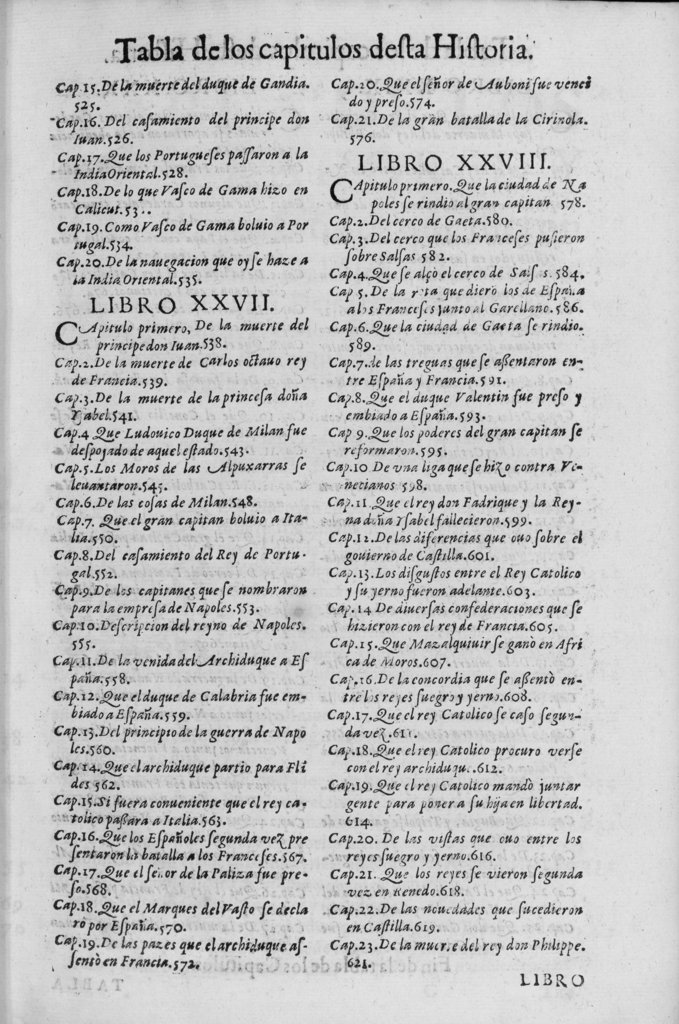 Tabla de los capitulos desta Historia.
Cap.15. De la muerte del duque de Gandia.
525.
Cap.16. Del casamiento del principe don
Iuan.526.
Cap.17. Que los Portugueses passaron a la
India Oriental.528.
Cap.18. De lo que Vasco de Gama hizo en
Calicut.53..
Cap.19. Como Vasco de Gama boluio a Por
tugal.534.
Cap.20. De la nauegacion que oy se haze a
la India Oriental.535.
LIBRO XXVII.
CApitulo primero, De la muerte del
principe don Iuan.538.
Cap.2. De la muerte de Carlos octauo rey
de Francia.539.
Cap.3. De la muerte de la princesa doña
Ysabel.541.
Cap.4 Que Ludouico Duque de Milan fue
despojado de aquel estado.543.
Cap.5. Los Moros de las Alpuxarras se
leuantaron.545.
Cap.6. De las cosas de Milan.548.
Cap.7. Que el gran capitan boluio a Ita-
lia.550.
Cap.8. Del casamiento del Rey de Portu-
gal.552.
Cap.9. De los capitanes que se nombraron
para la empresa de Napoles.553.
Cap.10. Descripcion del reyno de Napoles.
555.
Cap.11. De la venida del Archiduque a Es
paña.558.
Cap.12. Que el duque de Calabria fue em-
biado a España.559.
Cap.13. Del principio de la guerra de Napo
les.560.
Cap.14. Que el archiduque partio para Flã
des 562.
Cap.15. Si fuera conueniente que el rey ca-
tolico passara a Italia.563.
Cap.16. Que los Españoles segunda vez pre
sentaron la batalla a los Franceses.567.
Cap.17. Que el señor de la Paliza fue pre-
so.568.
Cap.18. Que el Marques del Vasto se decla
rò por España.570.
Cap.19. De las pazes que el archiduque as-
sentò en Francia.572.
Cap.20. Que el señor de Auboni fue venci
do y preso.574.
Cap.21. De la gran batalla de la Cirinola.
576.
LIBRO XXVIII.
CApitulo primero. Que la ciudad de Na
poles se rindio al gran capitan 578.
Cap.2. Del cerco de Gaeta.580.
Cap.3. Del cerco que los Franceses pusieron
sobre Salsas 582.
Cap.4. Que se alçò el cerco de Salsas.584.
Cap 5. De la rota que dierõ los de España
a los Franceses junto al Garellano.586.
Cap.6. Que la ciudad de Gaeta se rindio.
589.
Cap.7. de las treguas que se assentaron en-
tre España y Francia.591.
Cap.8. Que el duque Valentin fue preso y
embiado a España.593.
Cap 9. Que los poderes del gran capitan se
reformaron.595.
Cap.10 De vna liga que se hizo contra Ve-
necianos 598.
Cap.11. Que el rey don Fadrique y la Rey-
na doña Ysabel fallecieron.599.
Cap.12. De las diferencias que ouo sobre el
gouierno de Castilla.601.
Cap.13. Los disgustos entre el Rey Catolico
y su yerno fueron adelante.603.
Cap.14 De diuersas confederaciones que se
hizieron con el rey de Francia.605.
Cap.15. Que Mazalquiuir se ganò en Afri
ca de Moros.607.
Cap.16. De la concordia que se assentò en-
tre los reyes suegro y yerno.608.
Cap.17. Que el rey Catolico se caso segun-
da vez.611.
Cap.18. Que el rey Catolico procuro verse
con el rey archiduque.612.
Cap.19. Que el rey Catolico mandò juntar
gente para poner a su hija en libertad.
614.
Cap.20. De las vistas que ouo entre los
reyes suegro y yerno.616.
Cap.21. Que los reyes se vieron segunda
vez en Renedo.618.
Cap.22. De las nouedades que sucedieron
en Castilla.619.
Cap.23. De la muerte del rey don Philippe.
621.
LIBRO